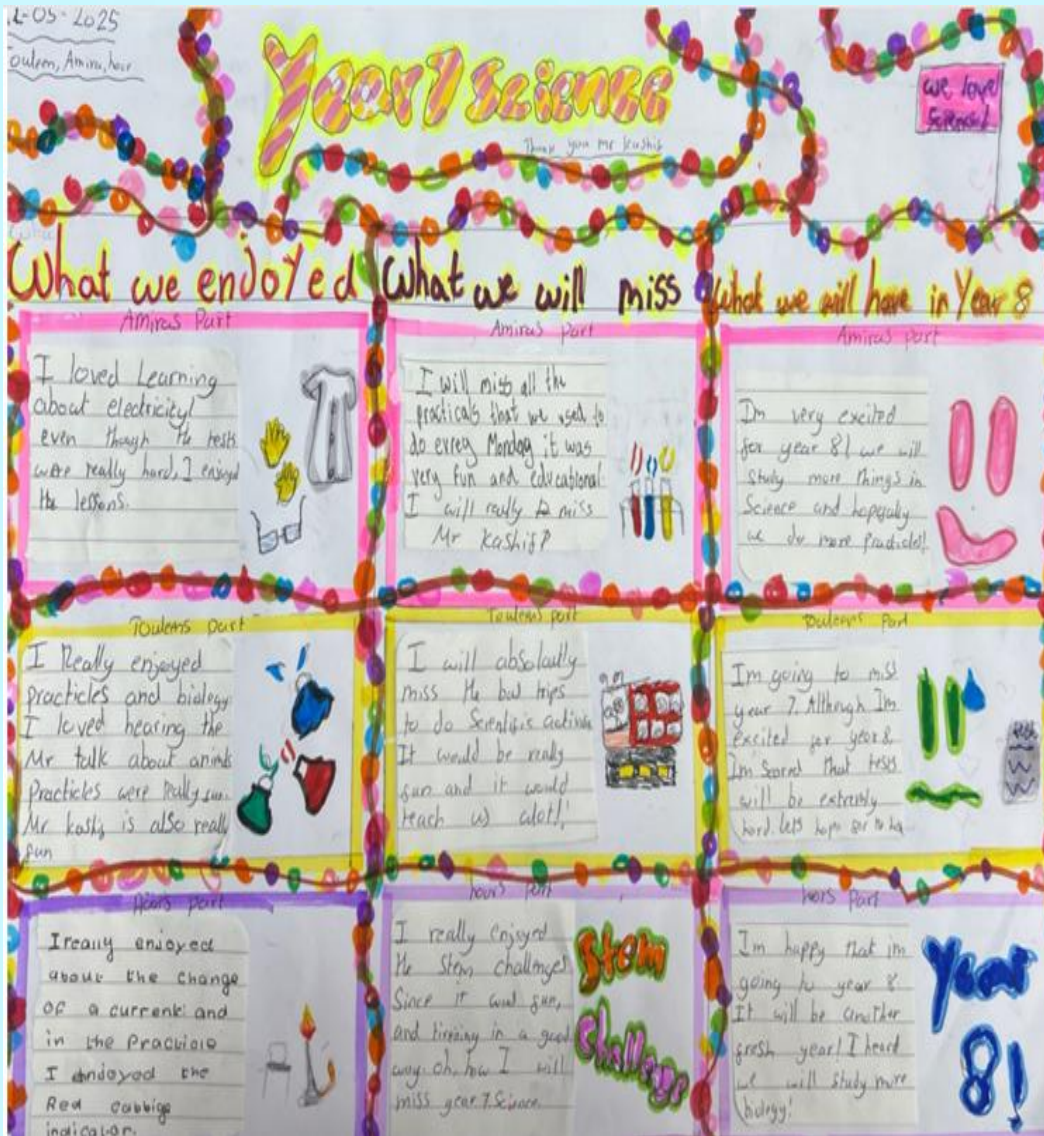 -05-2025
Touleen, Amira, hoor
Year 7 Science
Thank you Mr Kashif
we love
Science!
What we enjoyed
What we will miss
What we will have in Year 8
Amiras Part
I loved Learning
about electricity!
even though the tests
were really hard, I enjoyed
the lessons.
Amiras part
I will miss all the
practicals that we used to
do evrey Monday it was
very fun and educational!
I will really miss
Mr Kashif?
Amiras part
Im very excited
for year 8! we will
study more things in
Science and hopefully
we do more practicles!
Touleens part
I Really enjoyed
practicles and biology
I loved hearing the
Mr talk about
Practicles were Really fun.
Mr Kashif is also really
fun
Touleens part
I will absolautly
miss the trips
to do Scientific
It would be really
fun and it would
teach us alot!!
Touleens Part
Im going to miss
year 7. Although Im
excited for year 8
Im Scared that tests
will be extremly
hard. lets hope for
Hoors part
I really enjoyed
about the change
of a current and
in the Practicle
I endoyed the
Red cabbige
indicator.
hoors part
I really enjoyed
the Stem challenges
Since it was fun,
and tirening in a good
way. oh, how I will
miss year 7 Science.
Stem
challenge
hoors Part
Im happy that im
going to year 8.
It will be another
fresh year! I heard
we will study more
biology!
Year
8!